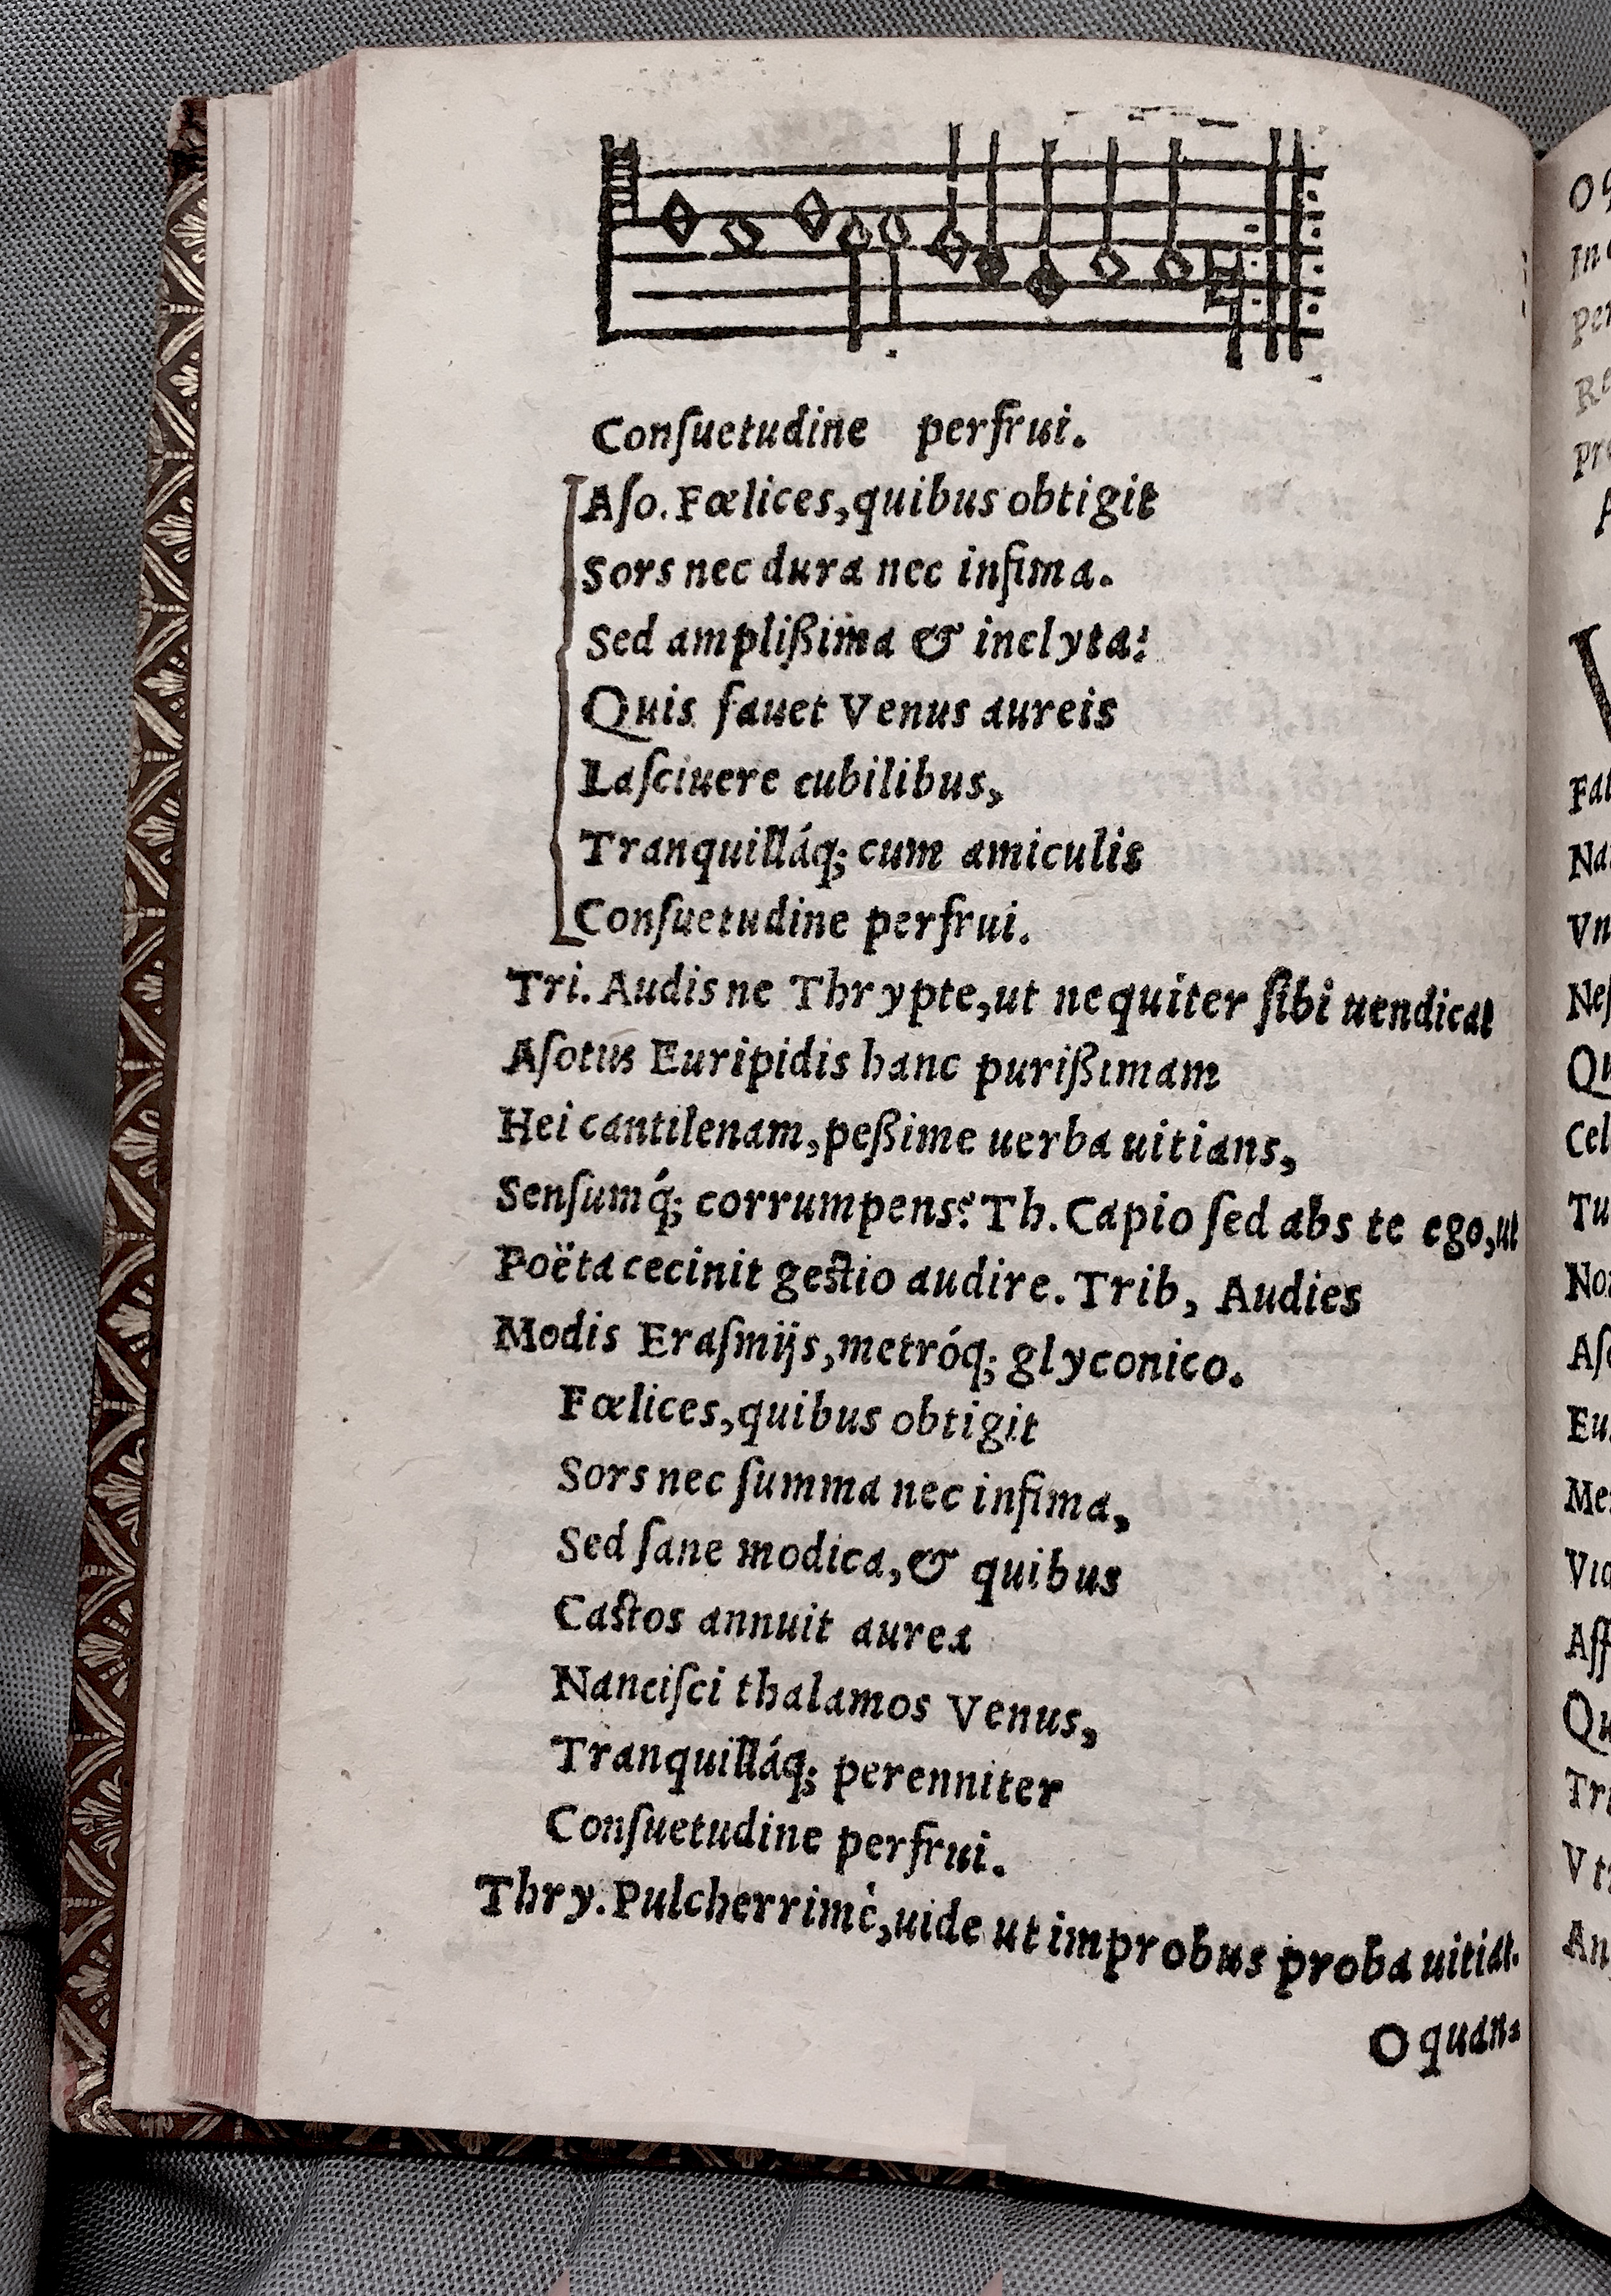 Conſuetudine perfrui.
Aſo. Fœlices, quibus obtigit
Sors nec dura nec infima.
Sed amplißima & inclyta:
Quis fauet Venus aureis
Laſciuere cubilibus,
Tranquilláq; cum amiculis
Conſuetudine perfrui.
Tri. Audis ne Thrypte, ut nequiter ſibi uendicat
Aſotus Euripidis hanc purißimam
Hei cantilenam, peßime uerba uitians,
Senſumq́; corrumpens? Th. Capio ſed abs te ego, ut
Poëta cecinit geſtio audire. Trib, Audies
Modis Eraſmijs, metróq; glyconico.
Fœlices, quibus obtigit
Sors nec ſumma nec infima,
Sed ſane modica, & quibus
Caſtos annuit aurea
Nanciſci thalamos Venus,
Tranquilláq; perenniter
Conſuetudine perfrui.
Thry. Pulcherrimè, uide ut improbus proba uitiat.
O quan-
O q
Per
Fal
Vn
Neſ
Qu
Cel
Tu
Aſo
Eu
Me
Aſſ
Qu
Tri
An